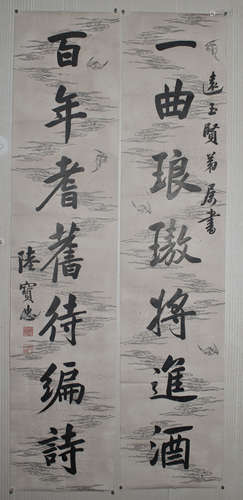 一曲琅璈將進酒
遠玉賢弟屬書
百年耆舊待編詩
陸寶忠